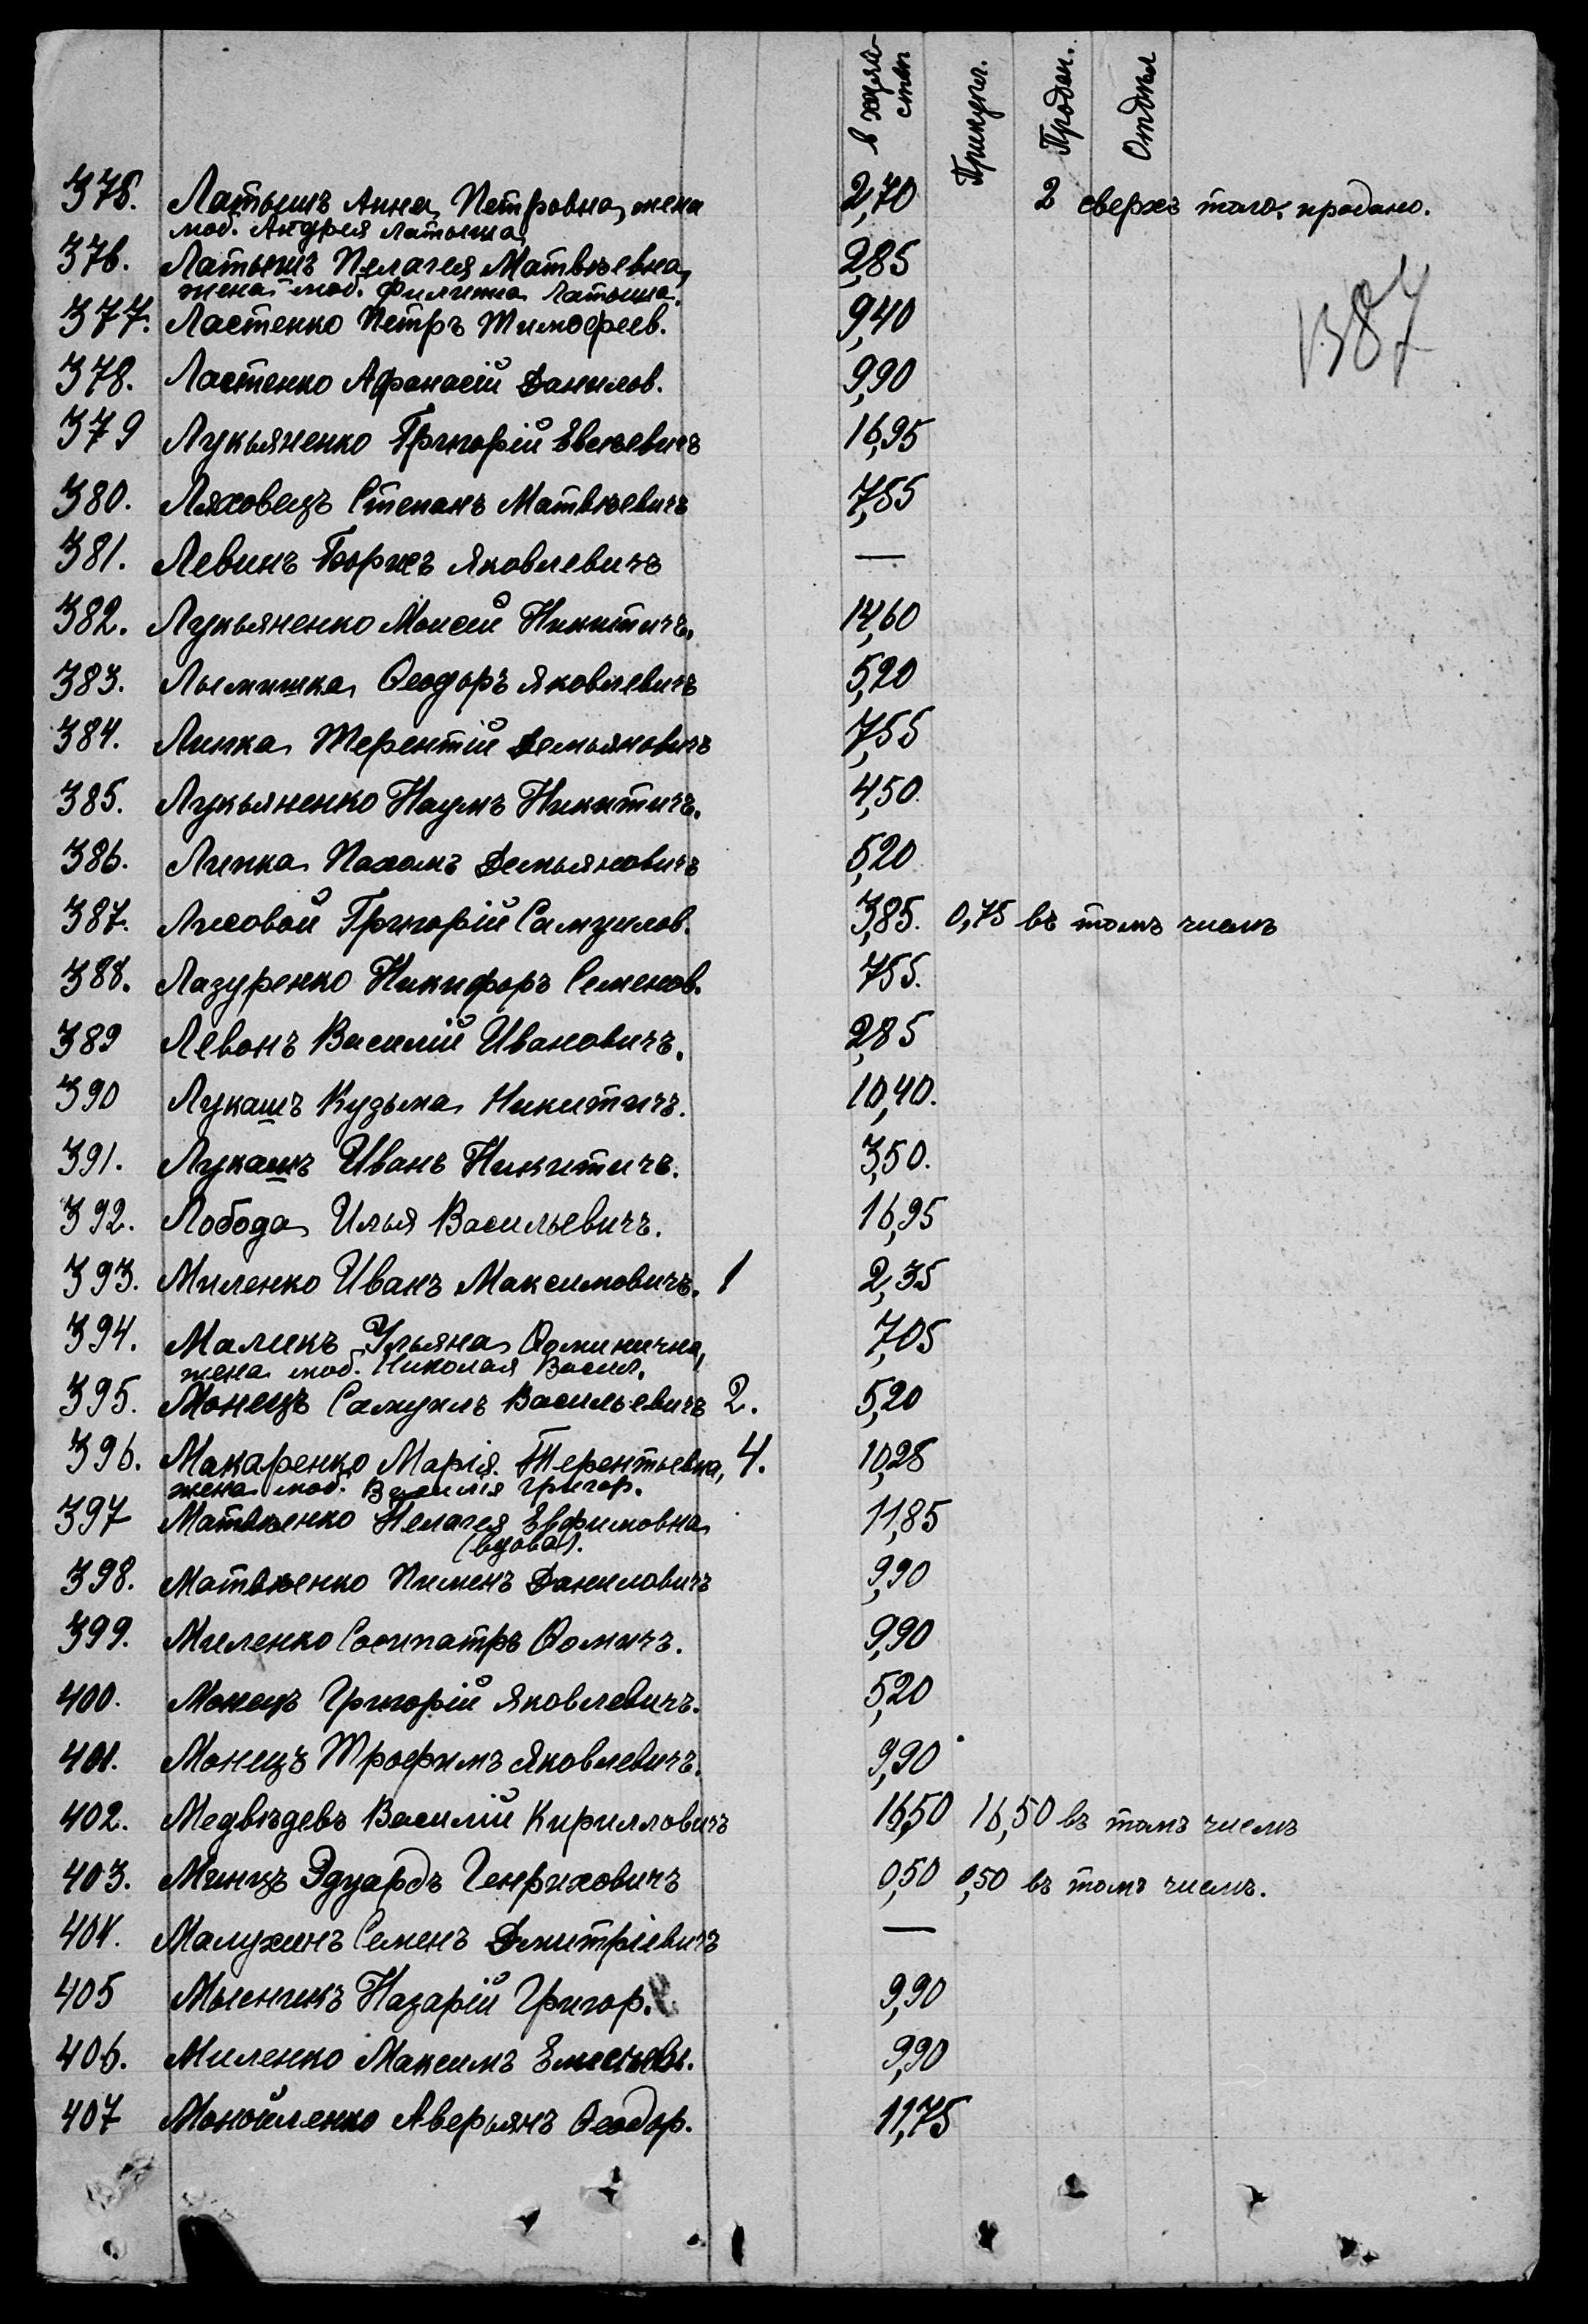 в хозяй-
ствѣ
Прикупл.
Продан.
387
375. Латышъ Анна Петровна, жена 2,70 2 сверхъ того продано.
моб. Андрея Латыша
376. Латышъ Пелагея Матвѣевна, 2,85
жена моб. Филиппа Латыша.
377. Ластенко Петръ Тимофеев. 9,40
378. Ластенко Афанасій Данилов. 9,90
379 Лукьяненко Григорій Евсѣевичъ 16,95
380. Ляховецъ Степанъ Матвѣевичъ 7,55
381. Левинъ Борисъ Яковлевичъ —
382. Лукьяненко Моисей Никитичъ. 14,60
383. Лымишка Ѳеодоръ Яковлевичъ 5,20
384. Липка Терентій Демьяновичъ 7,55
385. Лукьяненко Наумъ Никитичъ. 4,50.
386. Липка Пахомъ Демьяновичъ 5,20
387. Лисовой Григорій Самуилов. 3,85. 0,75 въ томъ числѣ
388. Лазуренко Никифоръ Семенов. 7,55.
389 Левонъ Василій Ивановичъ. 2,85
390 Лукашъ Кузьма Никитичъ. 10,40.
391. Лукашъ Иванъ Никитичъ. 3,50.
392. Лобода Илья Васильевичъ. 16,95
393. Миленко Иванъ Максимовичъ. 1 2,35
394. Маликъ Ульяна Ѳоминична, 7,05
жена моб. Николая Васил.
395. Монецъ Самуилъ Васильевичъ 2. 5,20
396. Макаренко Марія Терентьевна, 4. 10,28
жена моб. Василія Григор.
397 Матвѣенко Пелагея Евфимовна 11,85
(вдова).
398. Матвѣенко Пименъ Даниловичъ 9,90
399. Миленко Сосипатръ Ѳомичъ. 9,90
400. Монецъ Григорій Яковлевичъ. 5,20
401. Монецъ Трофимъ Яковлевичъ. 9,90
402. Медвѣдевъ Василій Кирилловичъ 16,50 16,50 въ томъ числѣ
403. Минцъ Эдуардъ Генриховичъ 0,50 0,50 въ томъ числѣ.
404. Малухинъ Семенъ Дмитріевичъ —
405 Мысникъ Назарій Григор. 9,90
406. Миленко Максимъ 9,90
407 Монойленко Аверьянъ Ѳеодор. 11,75